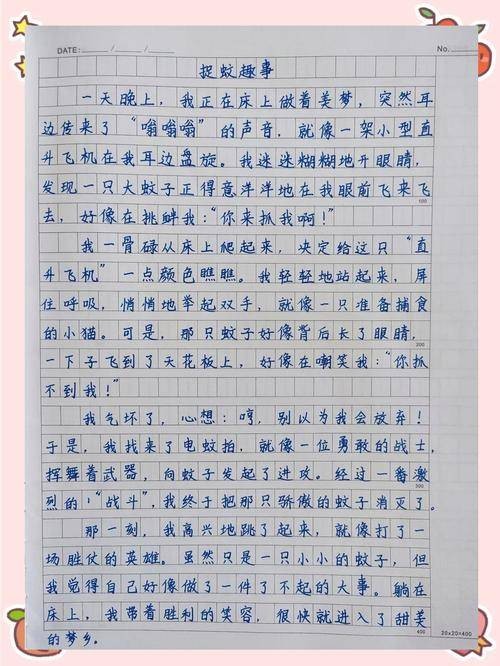 DATE: / /
No.
捉蚊趣事
一天晚上，我正在床上做着美梦，突然耳
边传来了“嗡嗡嗡”的声音，就像一架小型直
升飞机在我耳边盘旋。我迷迷糊糊地开眼睛，
发现一只大蚊子正得意洋洋地在我眼前飞来飞
100
去，好像在挑衅我：“你来抓我啊！”
我一骨碌从床上爬起来，决定给这只“直
升飞机”一点颜色瞧瞧。我轻轻地站起来，屏
住呼吸，悄悄地举起双手，就像一只准备捕食
的小猫。可是，那只蚊子好像背后长了眼睛，
200
一下子飞到了天花板上，好像在嘲笑我：“你抓
不到我！”
我气坏了，心想：哼，别以为我会放弃！
于是，我找来了电蚊拍，就像一位勇敢的战士，
挥舞着武器，向蚊子发起了进攻。经过一番激
300
烈的“战斗”，我终于把那只骄傲的蚊子消灭了。
那一刻，我高兴地跳了起来，就像打了一
场胜仗的英雄。虽然只是一只小小的蚊子，但
我觉得自己好像做了一件了不起的大事。躺在
床上，我带着胜利的笑容，很快就进入了甜美
400
20x20=400
的梦乡。